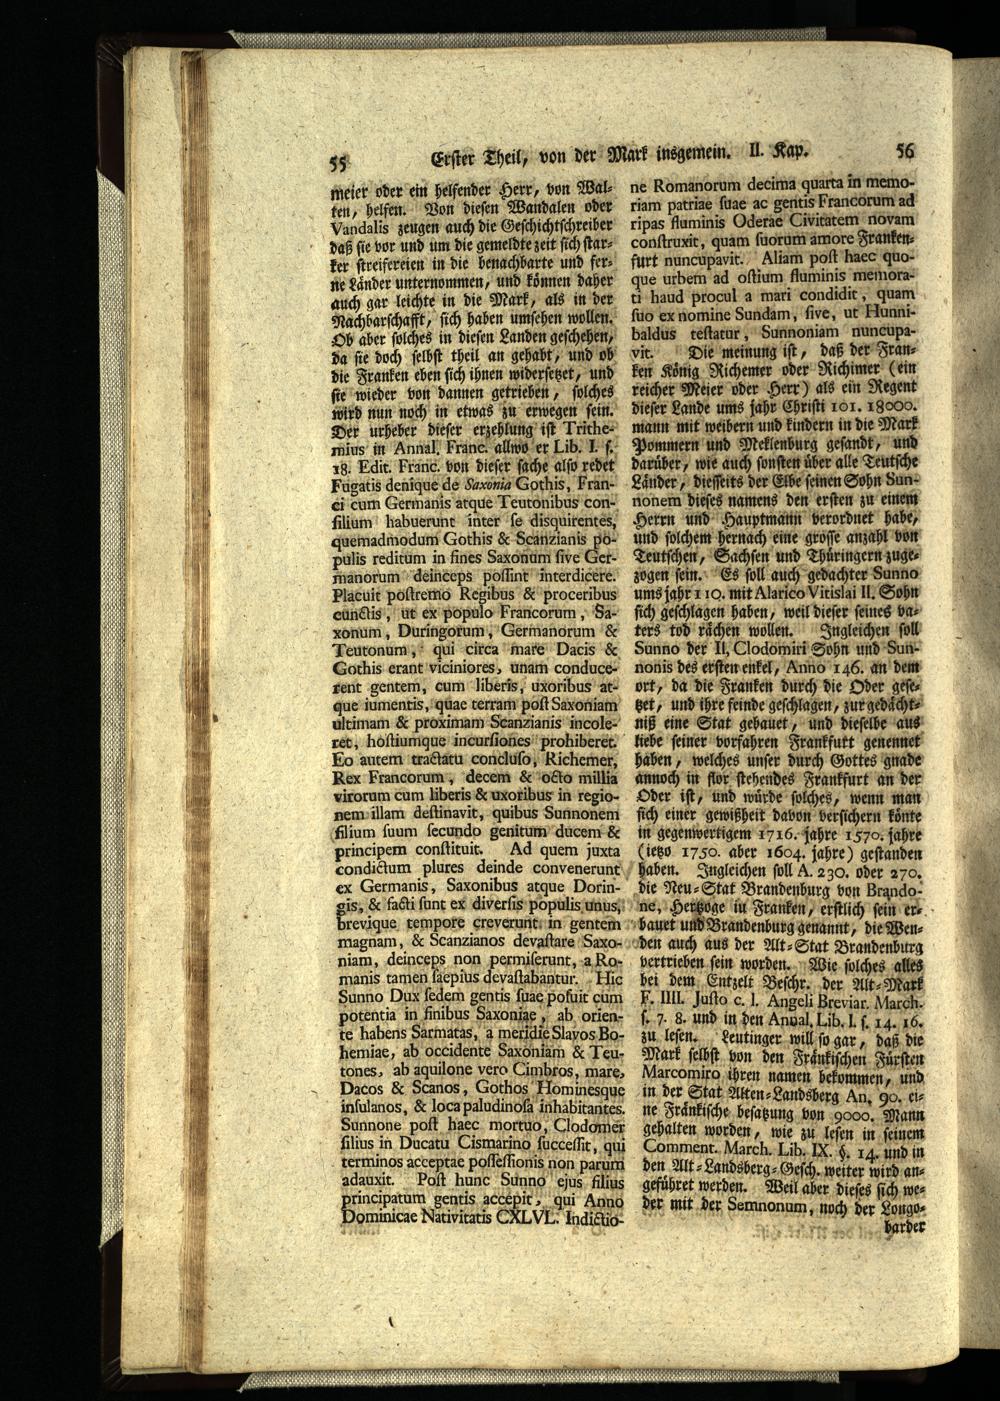 55
Erster Theil, von der Mark insgemein. II. Kap.
56
meier oder ein helfender Herr, von Wal-
ten, helfen. Von diesen Wandalen oder
Vandalis zeugen auch die Geschichtschreiber
daß sie vor und um die gemeldte zeit sich star-
ker streifereien in die benachbarte und fer-
ne Länder unternommen, und können daher
auch gar leichte in die Mark, als in der
Nachbarschafft, sich haben umsehen wollen.
Ob aber solches in diesen Landen geschehen,
da sie doch selbst theil an gehabt, und ob
die Franken eben sich ihnen widersetzet, und
sie wieder von dannen getrieben, solches
wird nun noch in etwas zu erwegen sein.
Der urheber dieser erzehlung ist Trithe-
mius in Annal. Franc. allwo er Lib. I. f.
18. Edit. Franc. von dieser sache also redet
Fugatis denique de Saxonia Gothis, Fran-
ci cum Germanis atque Teutonibus con-
silium habuerunt inter se disquirentes,
quemadmodum Gothis & Scanzianis po-
pulis reditum in fines Saxonum sive Ger-
manorum deinceps possint interdicere.
Placuit postremo Regibus & proceribus
cunctis, ut ex populo Francorum, Sa-
xonum, Duringorum, Germanorum &
Teutonum, qui circa mare Dacis &
Gothis erant viciniores, unam conduce-
rent gentem, cum liberis, uxoribus at-
que iumentis, quae terram post Saxoniam
ultimam & proximam Scanzianis incole-
ret, hostiumque incursiones prohiberet.
Eo autem tractatu concluso, Richemer,
Rex Francorum, decem & octo millia
virorum cum liberis & uxoribus in regio-
nem illam destinavit, quibus Sunnonem
filium suum secundo genitum ducem &
principem constituit. Ad quem juxta
condictum plures deinde convenerunt
ex Germanis, Saxonibus atque Dorin-
gis, & facti sunt ex diversis populis unus,
brevique tempore creverunt in gentem
magnam, & Scanzianos devastare Saxo-
niam, deinceps non permiserunt, a Ro-
manis tamen saepius devastabantur. Hic
Sunno Dux sedem gentis suae posuit cum
potentia in finibus Saxoniae, ab orien-
te habens Sarmatas, a meridie Slavos Bo-
hemiae, ab occidente Saxoniam & Teu-
tones, ab aquilone vero Cimbros, mare,
Dacos & Scanos, Gothos Hominesque
insulanos, & loca paludinosa inhabitantes.
Sunnone post haec mortuo, Clodomer
filius in Ducatu Cismarino successit, qui
terminos acceptae possessionis non parum
adauxit. Post hunc Sunno ejus filius
principatum gentis accepit, qui Anno
Dominicae Nativitatis CXLVL. Indictio-
ne Romanorum decima quarta in memo-
riam patriae suae ac gentis Francorum ad
ripas fluminis Oderae Civitatem novam
construxit, quam suorum amore Franken-
furt nuncupavit. Aliam post haec quo-
que urbem ad ostium fluminis memora-
ti haud procul a mari condidit, quam
suo ex nomine Sundam, sive, ut Hunni-
baldus testatur, Sunnoniam nuncupa-
vit. Die meinung ist, daß der Fran-
ken König Richemer oder Richimer (ein
reicher Meier oder Herr) als ein Regent
dieser Lande ums jahr Christi 101. 18000.
mann mit weibern und kindern in die Mark
Pommern und Meklenburg gesandt, und
darüber, wie auch sonsten über alle Teutsche
Länder, diesseits der Elbe seinen Sohn Sun-
nonem dieses namens den ersten zu einem
Herrn und Hauptmann verordnet habe,
und solchem hernach eine grosse anzahl von
Teutschen, Sachsen und Thüringern zuge-
zogen sein. Es soll auch gedachter Sunno
ums jahr 110. mit Alarico Vitislai II. Sohn
sich geschlagen haben, weil dieser seines va-
ters tod rächen wollen. Ingleichen soll
Sunno der II, Clodomiri Sohn und Sun-
nonis des ersten enkel, Anno 146. an dem
ort, da die Franken durch die Oder gese-
tzet, und ihre feinde geschlagen, zur gedächt-
niß eine Stat gebauet, und dieselbe aus
liebe seiner vorfahren Frankfurt genennet
haben, welches unser durch Gottes gnade
annoch in flor stehendes Frankfurt an der
Oder ist, und würde solches, wenn man
sich einer gewißheit davon versichern könte
in gegenwertigem 1716. jahre 1570. jahre
(ietzo 1750. aber 1604. jahre) gestanden
haben. Ingleichen soll A. 230. oder 270.
die Neu-Stat Brandenburg von Brando-
ne, Hertzoge in Franken, erstlich sein er-
bauet und Brandenburg genannt, die Wen-
den auch aus der Alt-Stat Brandenburg
vertrieben sein worden. Wie solches alles
bei dem Entzelt Beschr. der Alt-Mark
F. IIII. Justo c. l. Angeli Breviar. March.
f. 7. 8. und in den Annal. Lib. I. f. 14. 16.
zu lesen. Leutinger will so gar, daß die
Mark selbst von den Fränkischen Fürsten
Marcomiro ihren namen bekommen, und
in der Stat Alten-Landsberg An. 90. ei-
ne Fränkische besatzung von 9000. Mann
gehalten worden, wie zu lesen in seinem
Comment. March. Lib. IX. §. 14. und in
den Alt-Landsberg-Gesch. weiter wird an-
geführet werden. Weil aber dieses sich we-
der mit der Semnonum, noch der Longo-
barder